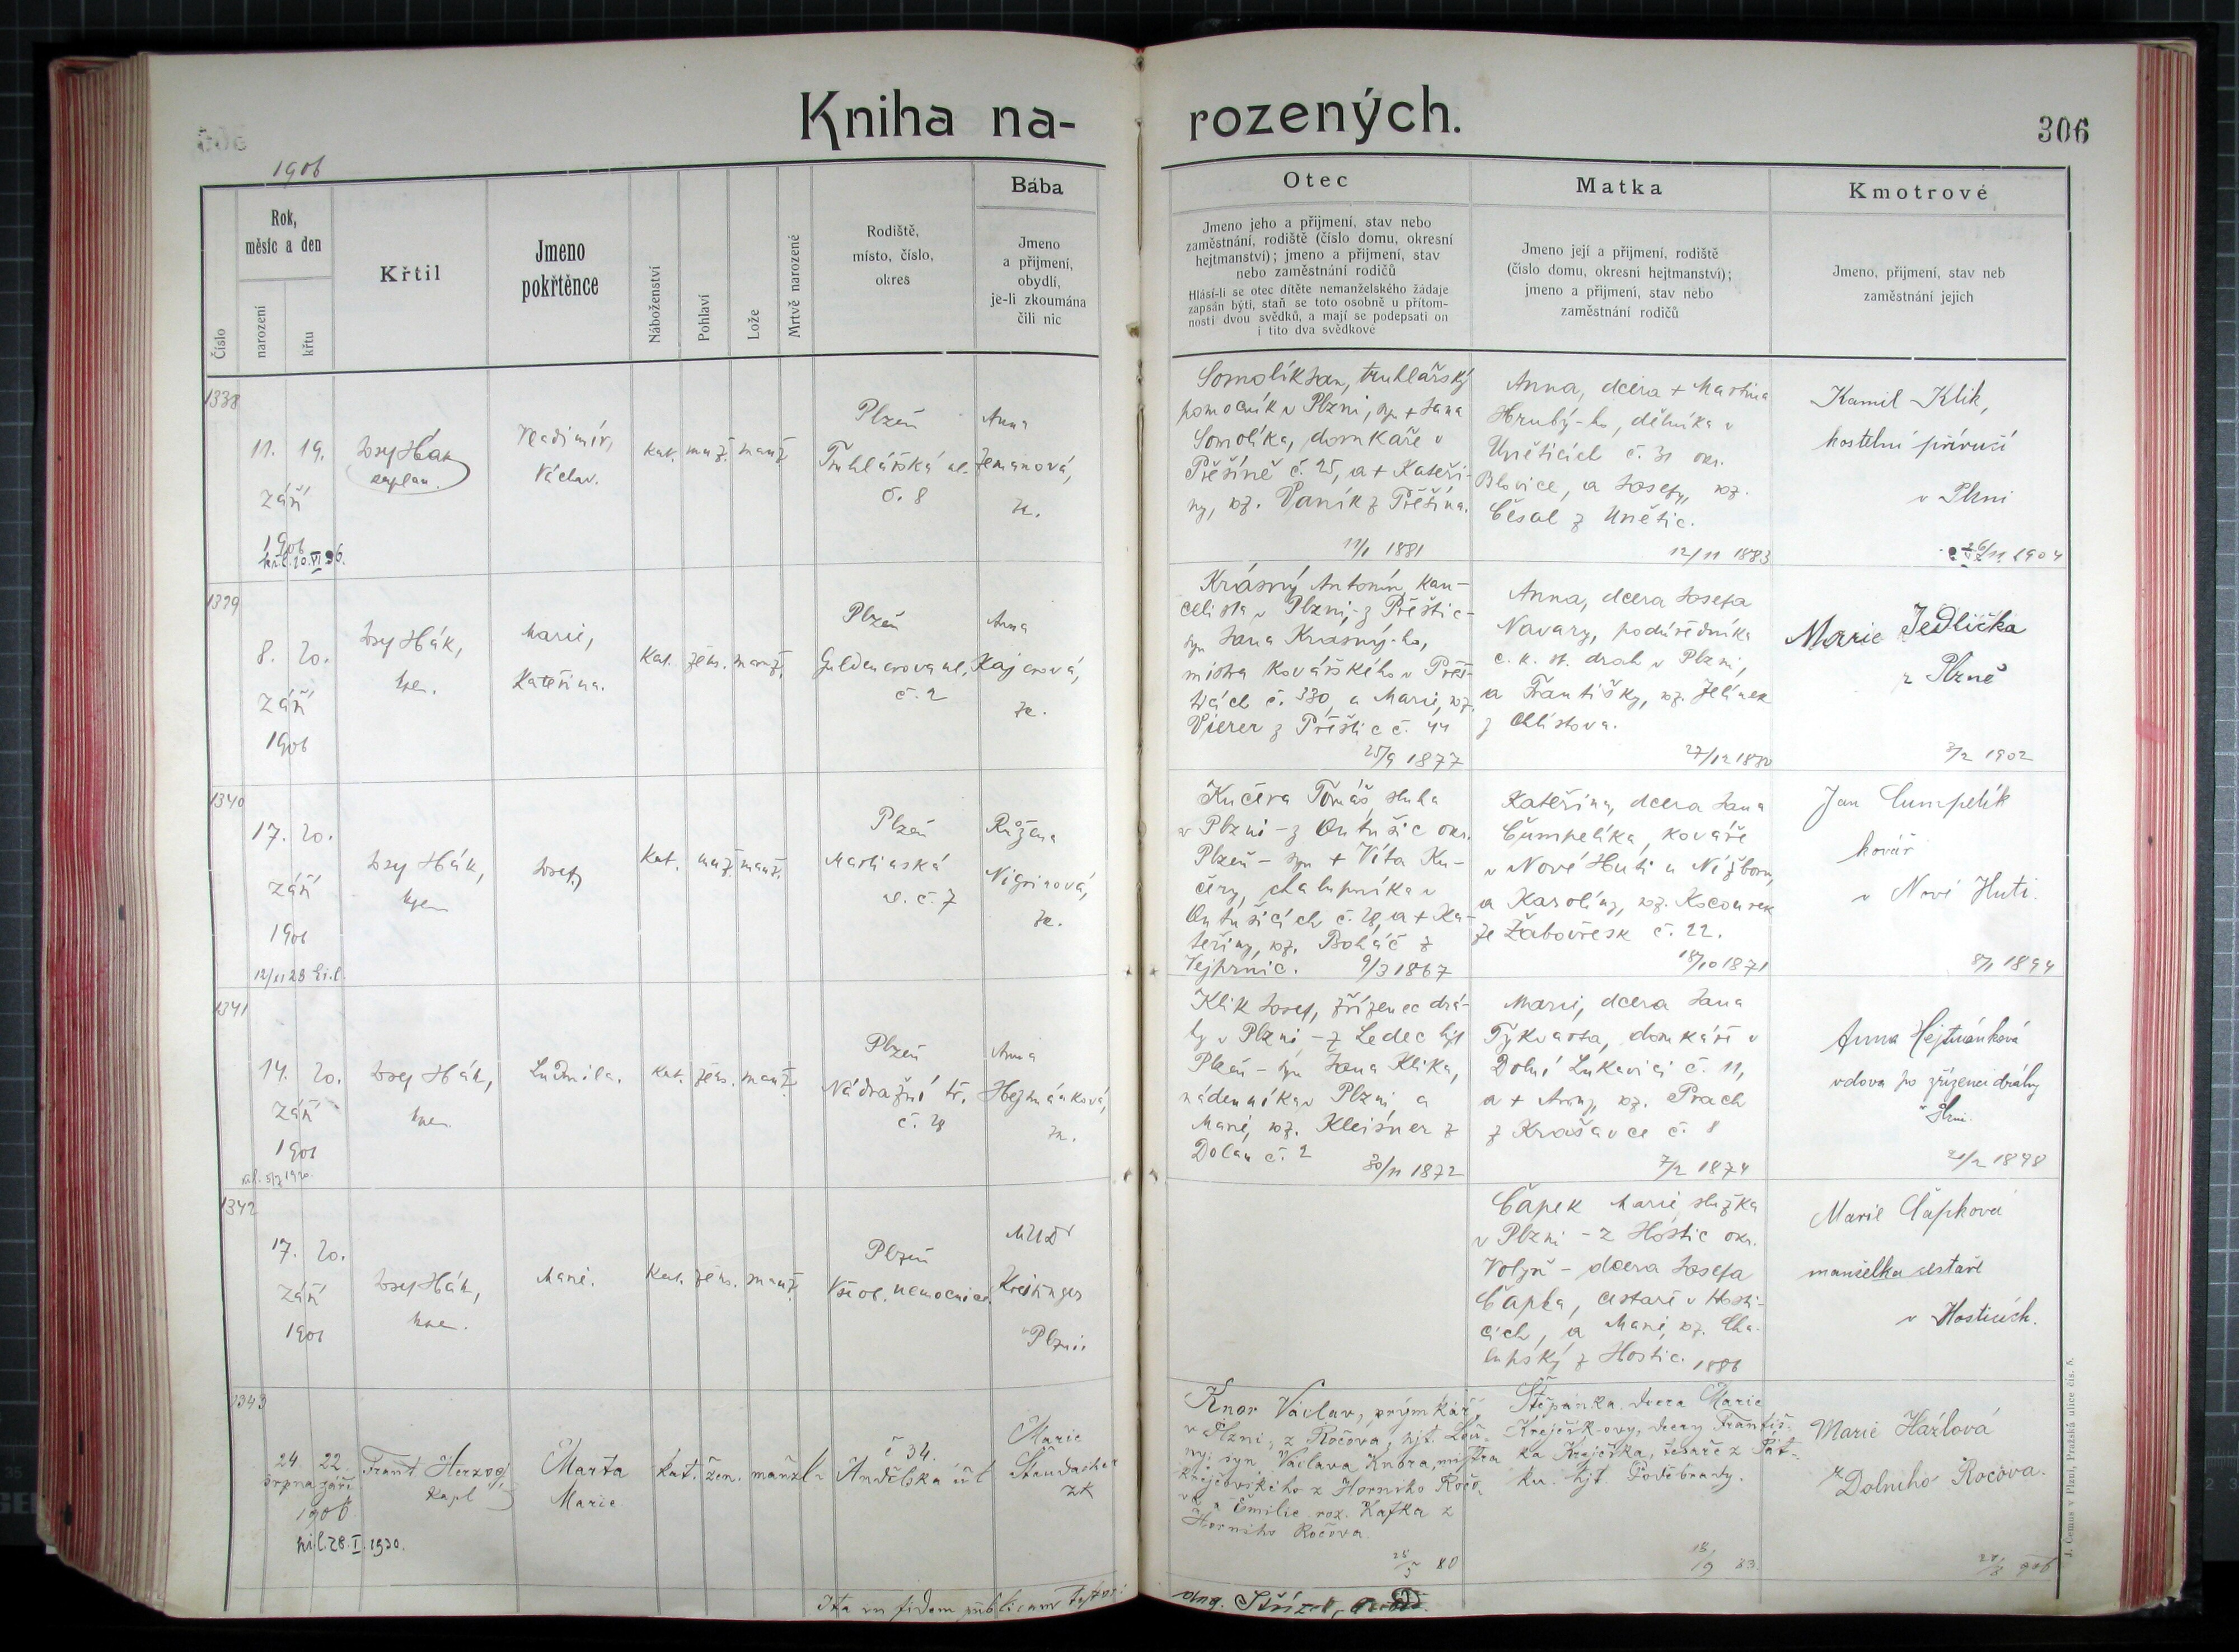 Kniha na-rozených.
306
1906
Číslo
Rok,
měsíc a den
narození
křtu
Křtil
Jmeno
pokřtěnce
Náboženství
Pohlaví
Lože
Mrtvě narozené
Rodiště,
místo, číslo,
okres
Bába
Jmeno
a přijmení,
obydlí,
je-li zkoumána
čili nic
Otec
Jmeno jeho a přijmení, stav nebo
zaměstnání, rodiště (číslo domu, okresní
hejtmanství); jmeno a přijmení, stav
nebo zaměstnání rodičů
Hlásí-li se otec dítěte nemanželského žádaje
zapsán býti, staň se toto osobně u přítom-
nosti dvou svědků, a mají se podepsati on
i tito dva svědkové
Matka
Jmeno její a přijmení, rodiště
(číslo domu, okresní hejtmanství);
jmeno a přijmení, stav nebo
zaměstnání rodičů
Kmotrové
Jmeno, přijmení, stav neb
zaměstnání jejich
1338
11. 19.
září
1906
Josef Hák
kaplan.
Vladimír,
Václav.
kat. muž. manž.
Plzeň
Truhlářská ul.
č. 8
Anna
Zemanová,
zk.
Somolík Jan, truhlářský
pomocník v Plzni, syn + Jana
Somolíka, domkáře v
č. 25, a + Kateři-
ny, roz. Vaník z
11/1 1881
Anna, dcera + Martina
Hrubý-ho, dělníka v
Unětících č. 31 okr.
Blovice, a Josefy, roz.
Česal z Unětic.
12/11 1883
Kamil Klik,
kostelní
v Plzni
1904
1339
8. 20.
září
1906
Josef Hák,
kpn.
Marie,
Kateřina.
Kat. žens. manž.
Plzeň
Guldenerova ul.
č. 2
Anna
Kajerová,
zk.
Krásný Antonín, kan-
celista v Plzni, z Přeštic -
syn Jana Krásný-ho,
mistra kovářského v Přeš-
ticích č. 330, a Marie, roz.
Vierer z Přeštic č. 44
25/9 1877
Anna, dcera Josefa
Navary, podúředníka
c. k. st. drah v Plzni,
a Františky, roz. Jelínek
z Chlístova.
27/12 1880
Marie Jedlička
z Plzně
3/2 1902
1340
17. 20.
září
1906
12/11 28
Josef Hák,
kpn
Josef
Kat. muž. manž.
Plzeň
Martinská
ul. č. 7
Růžena
Nigrinová,
zk.
Kučera Tomáš, sluha
v Plzni - z Ontušic okr.
Plzeň - syn + Víta Ku-
čery, chalupníka v
Ontušicích č. 28, a + Ka-
teřiny, roz. Boháč z
Vejprnic. 9/3 1867
Kateřina, dcera Jana
Čumpelíka, kováře
v Nové Huti u Nižboru,
a Karolíny, roz. Kocourek
ze Žabovřesk č. 22.
18/10 1871
Jan Čumpelík
kovář
v Nové Huti.
8/1 1894
1341
14. 20.
září
1906
Josef Hák,
kpn.
Ludmila.
Kat. žens. manž.
Plzeň
Nádražní tř.
č. 28
Anna
Hejtmánková,
zk.
Klik Josef, zřízenec drá-
hy v Plzni - z Ledec hjt
Plzeň - syn Jana Klika,
nádenníka v Plzni, a
Marie, roz. Kleisner z
Dolan č. 2
30/11 1872
Marie, dcera Jana
Tykvarta, domkáře v
Dolní Lukavici č. 11,
a + Anny, roz. Prach
z Krašavce č. 8
7/2 1874
Anna Hejtmánková
vdova po zřízenci dráhy
v Plzni.
1898
1342
17. 20.
září
1906
Josef Hák,
kpn.
Marie.
Kat. žens. manž.
Plzeň
Všeob. nemocnice
MUDr
Kreisinger
v Plzni
Čapek Marie, služka
v Plzni - z Hostic okr.
Volyň - dcera Josefa
Čapka, cestaře v Hosti-
cích, a Marie, roz. Cha-
lupský z Hostic. 1886
Marie Čapková
manželka cestáře
v Hosticích.
1343
24. 22.
srpna září
1906
28. I. 1920.
Frant. Herzog,
kapl
Marta
Marie
kat. žen. manžel.
č 34.
Andělská ul
Marie
Staudacher
zk
Knor Václav, prýmkář
v Plzni, z Ročova, hjt. Lou-
ny, syn Václava Knora, mistra
krejčovského z Horního Ročo-
va a Emilie roz. Kafka z
Horního Ročova.
80
Štěpánka dcera Marie
Krejčíkovy, dcery Františ-
ka Krejčíka, tesaře z Pát-
ku hjt. Poděbrady.
18/9 83.
Marie Házlová
z Dolního Ročova.
906
Ita in fidem publicam testor:
J. Černus v Plzni, Pražská ulice čís. 5.